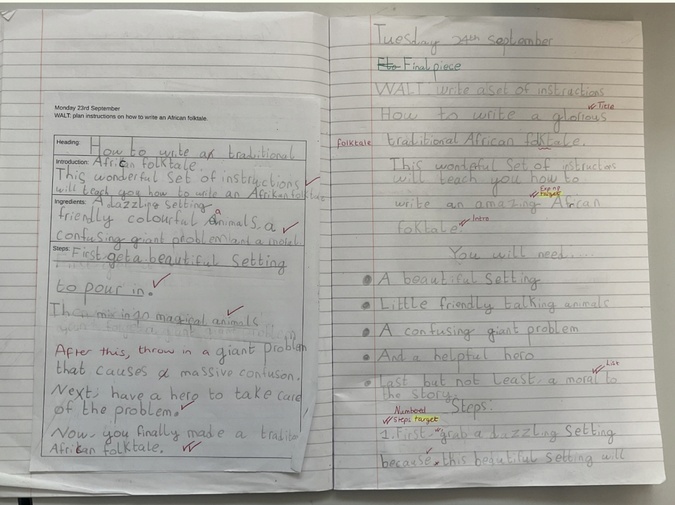 Monday 23rd September
WALT: plan instructions on how to write an African folktale.
Heading: How to write a traditional
African folktale.
Introduction:
This wonderful set of instructions
will teach you how to write an African folktale
Ingredients: A dazzling setting
friendly colourful animals, a
confusing giant problem and a moral
Steps: First get a beautiful setting
to pour in.
Then mix in 20 magical animals
After this, throw in a giant problem
that causes a massive confuson.
Next, have a hero to take care
of the problem.
Now, you finally made a
African folktale.
Tuesday 24th September
Final piece
WALT: write a set of instructions
Title
How to write a glorious
folktale
traditional African folktale.
This wonderful set of
will teach you how to
target
write an amazing African
foktale
Intro
You will need.....
A beautiful setting
Little friendly talking animals
A confusing giant problem
And a helpful hero
List
Last but not least, a moral to
the story.
Numbered
Steps target
Steps:
1. First, grab a dazzling setting
because this beautiful setting will